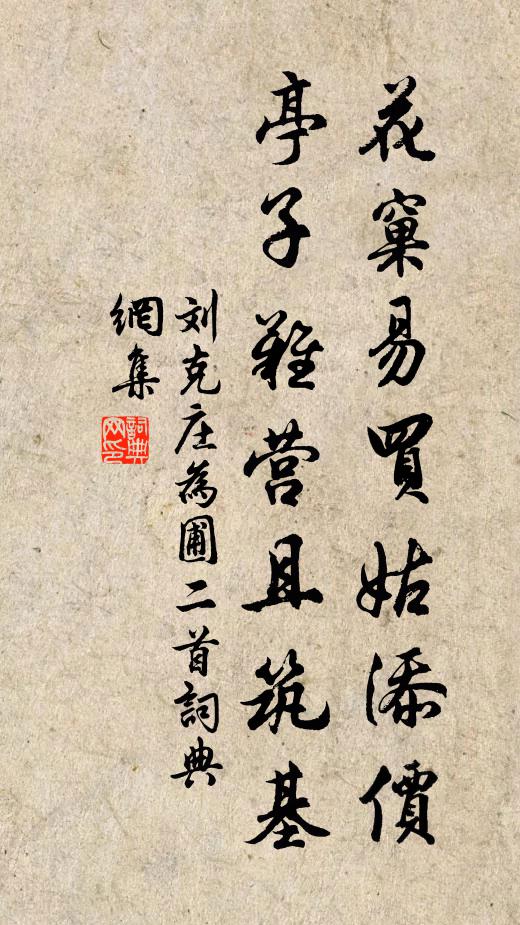 花窠易買姑添價
亭子難营且筑基
刘克庄為圃二首詞典
網集
詞典网印